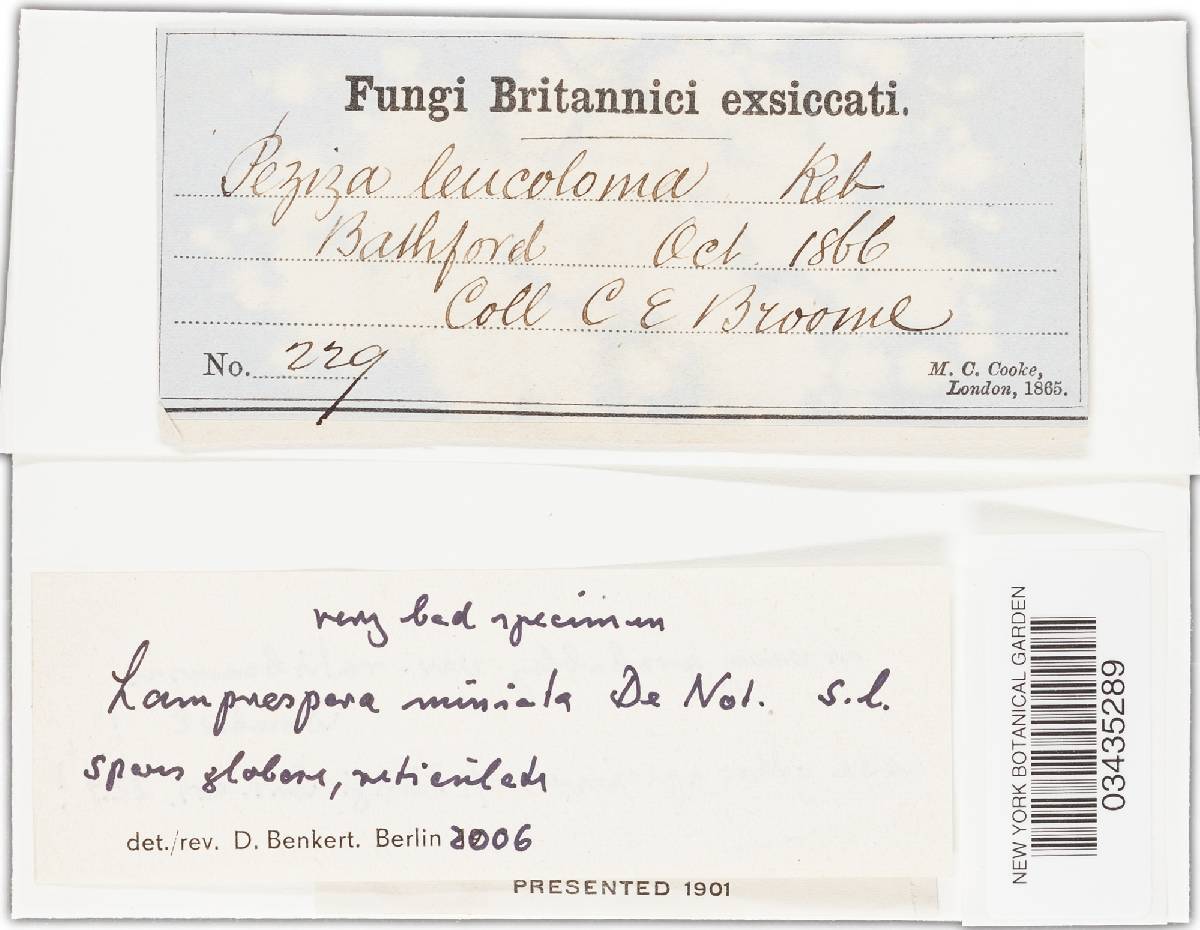 Fungi Britannici exsiccati.
Peziza leucoloma Reb
Bathford Oct 1866
Coll C E Broome
No. 229
M. C. Cooke,
London, 1865.
very bad specimen
Lamprospora miniata De Not. s.l.
spores globose, reticulate
det./rev. D. Benkert. Berlin 2006
PRESENTED 1901
NEW YORK BOTANICAL GARDEN
03435289